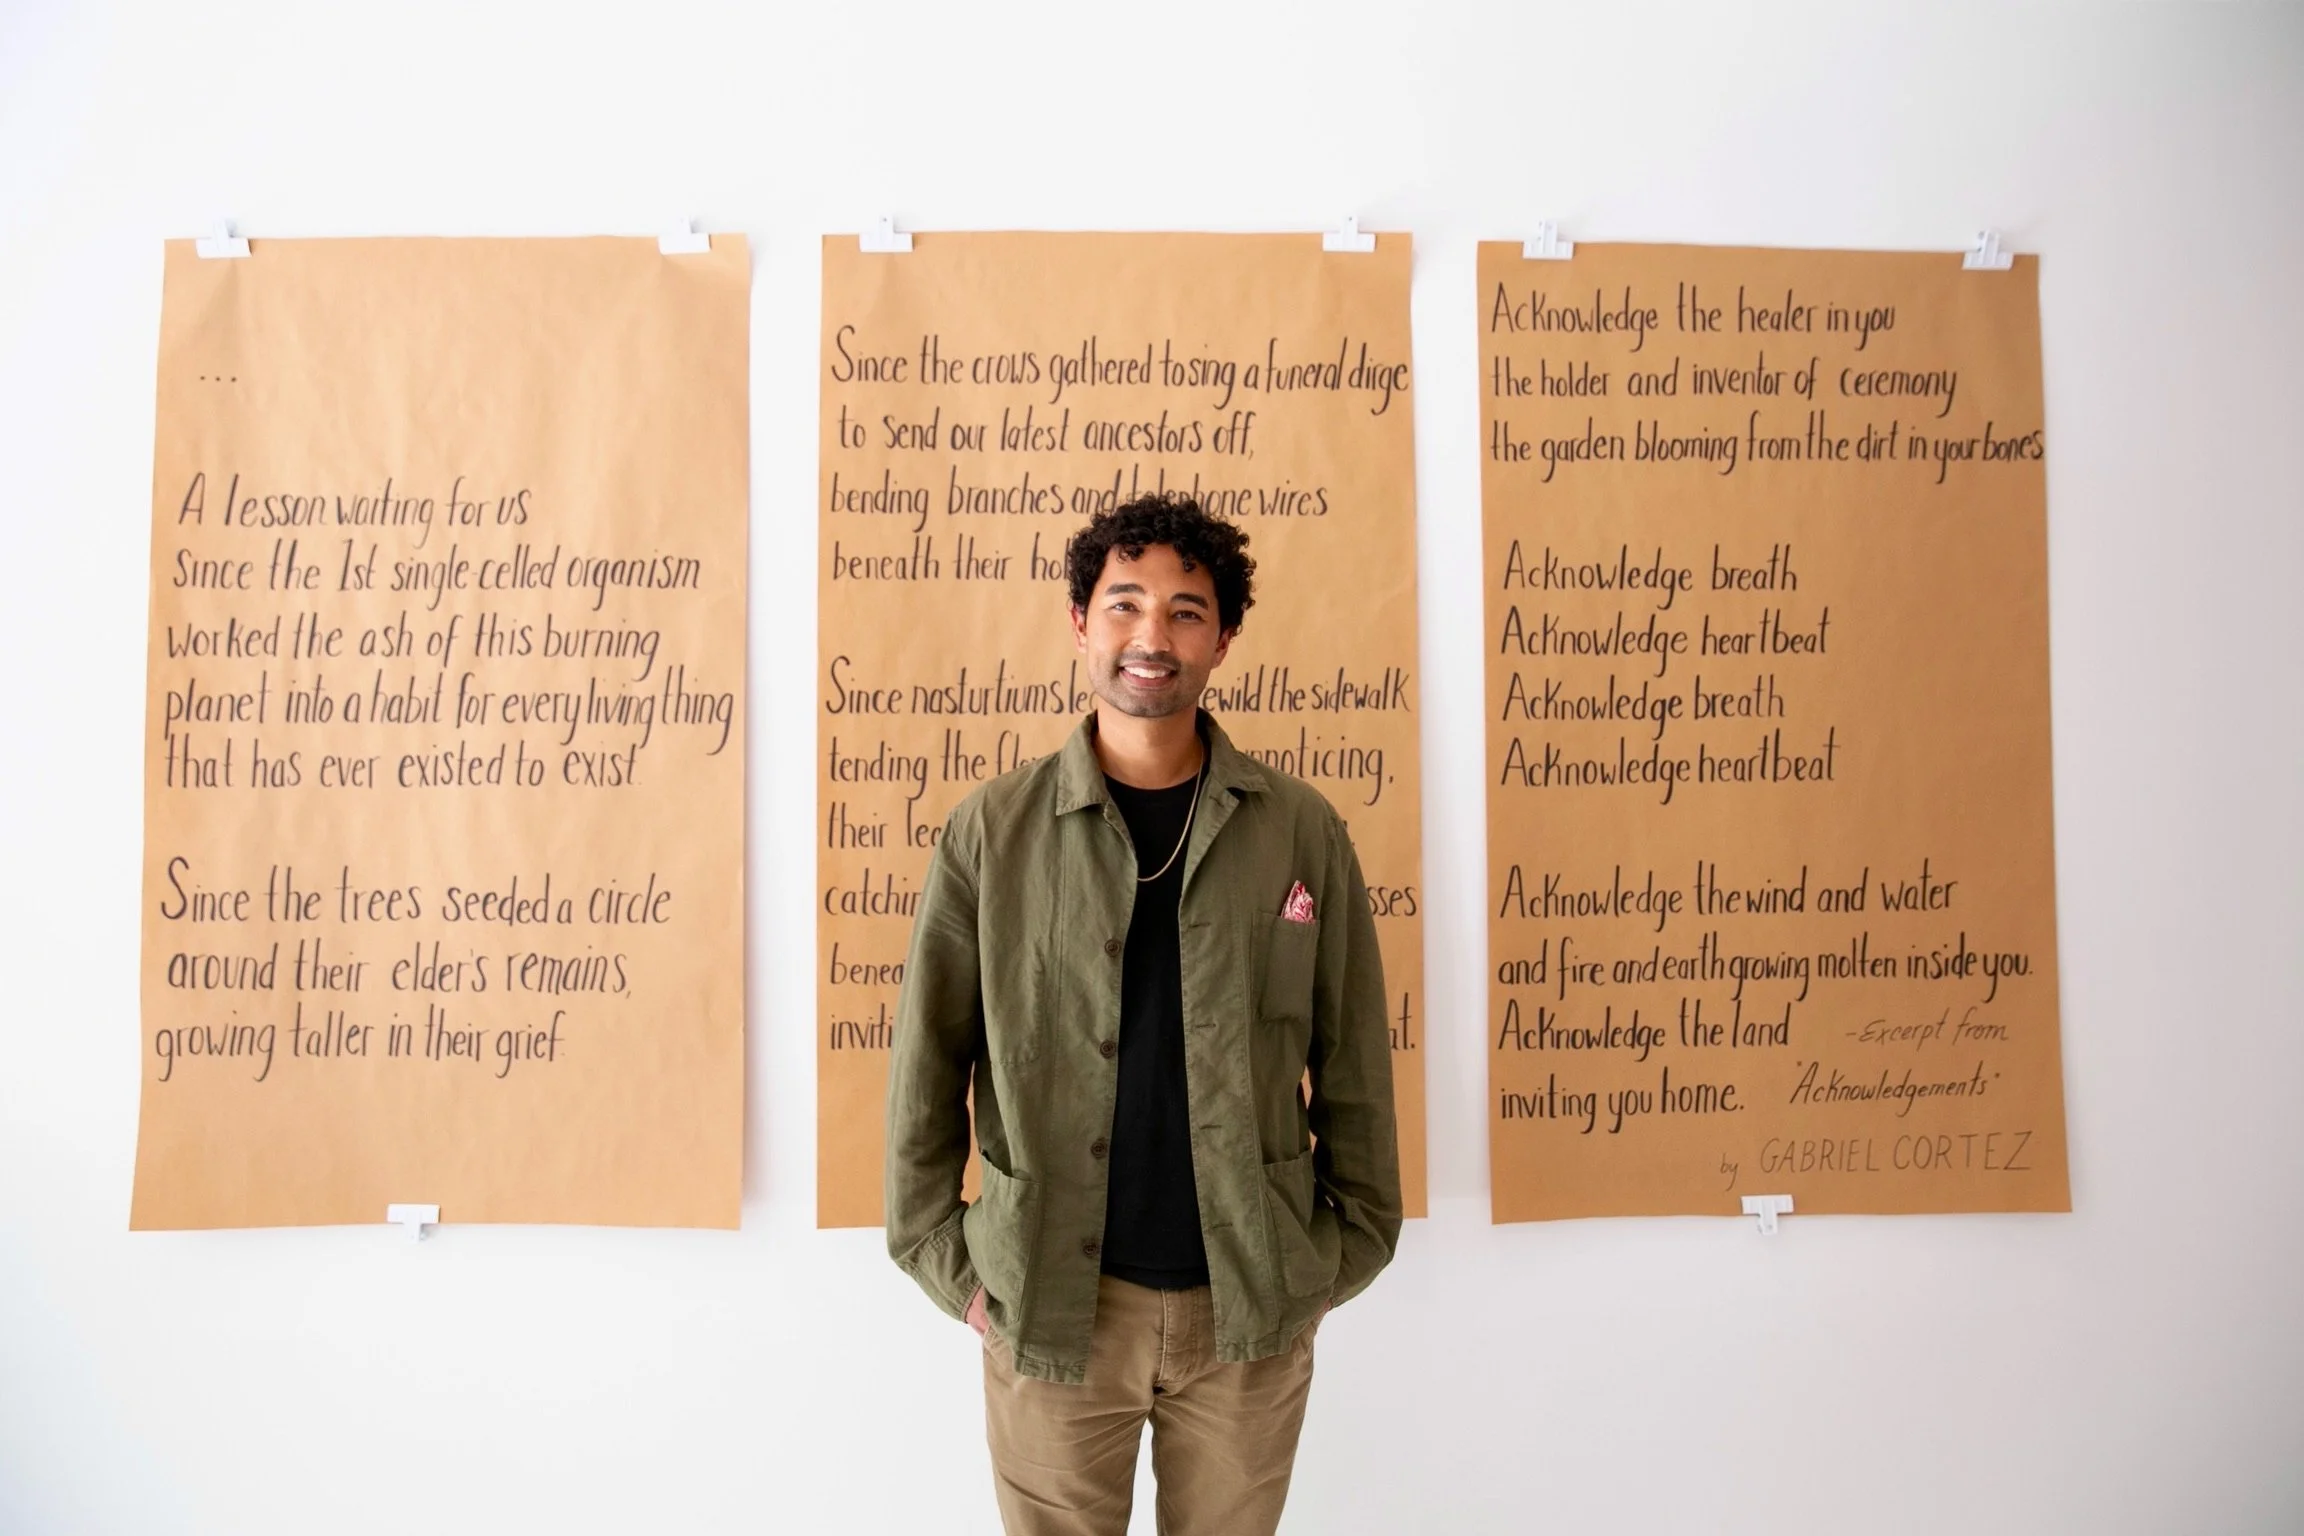 ...
A lesson waiting for us
since the 1st single-celled organism
worked the ash of this burning
planet into a habit for every living thing
that has ever existed to exist.
Since the trees seeded a circle
around their elder's remains,
growing taller in their grief.
Since the crows gathered to sing a funeral dirge
to send our latest ancestors off,
bending branches and telephone wires
beneath their
Since nasturtiums the sidewalk
tending the
their
beneath
Acknowledge the healer in you
the holder and inventor of ceremony
the garden blooming from the dirt in your bones
Acknowledge breath
Acknowledge heartbeat
Acknowledge breath
Acknowledge heartbeat
Acknowledge the wind and water
and fire and earth growing molten inside you.
Acknowledge the land
inviting you home.
-Excerpt from
"Acknowledgements"
by GABRIEL CORTEZ